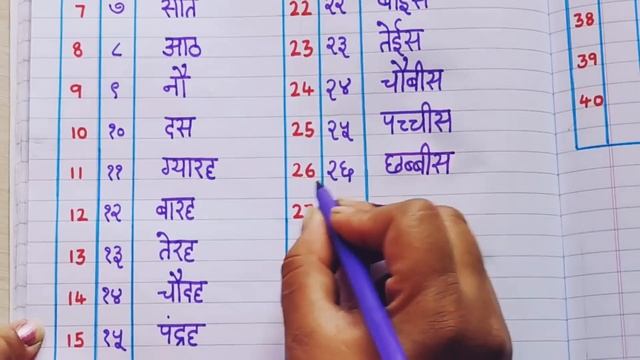 7 ७ सात
8 ८ आठ
9 ९ नौ
10 १० दस
11 ११ ग्यारह
12 १२ बारह
13 १३ तेरह
14 १४ चौदह
15 १५ पंद्रह
22 २२ बाईस
23 २३ तेईस
24 २४ चौबीस
25 २५ पच्चीस
26 २६ छब्बीस
38
39
40